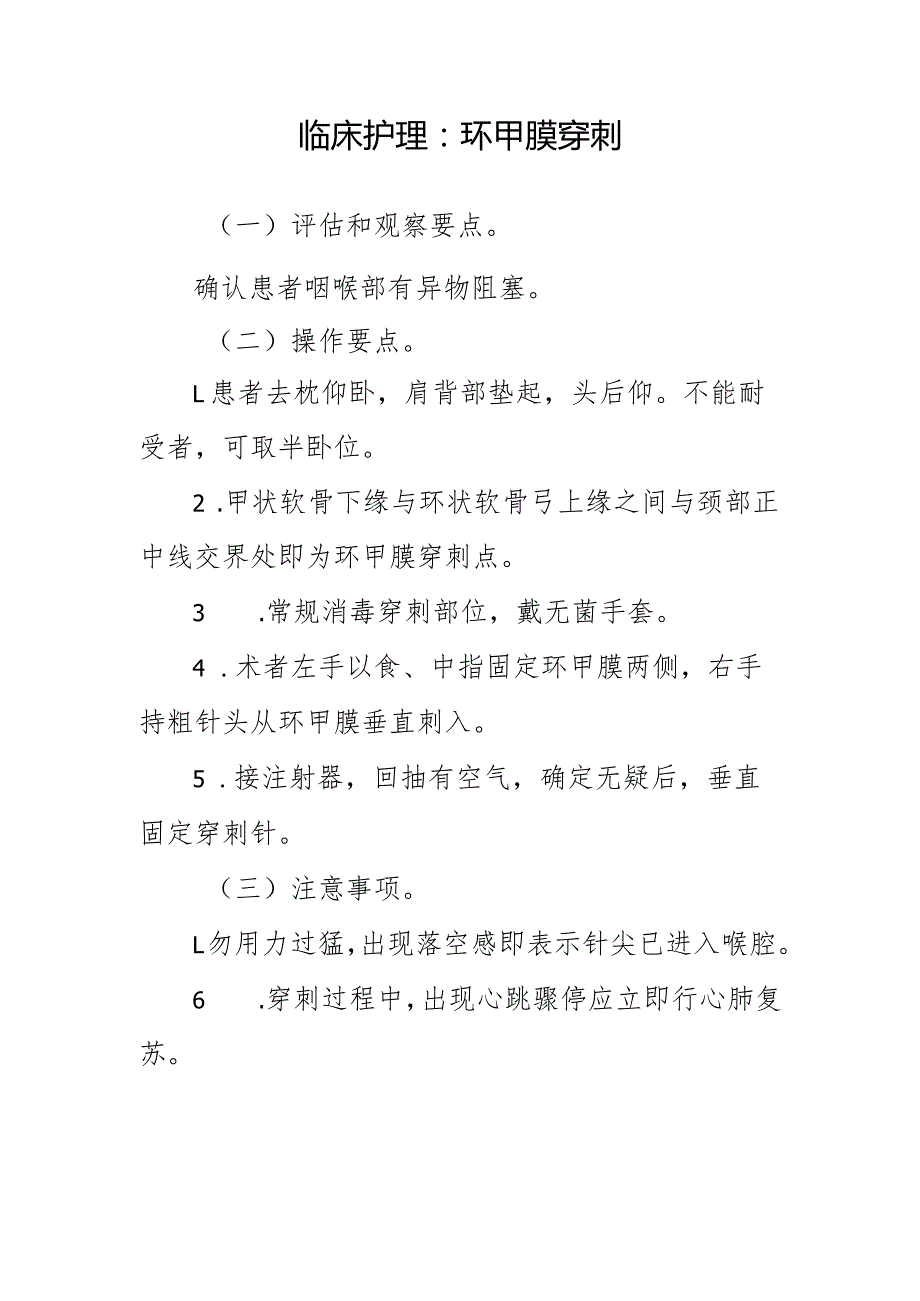 临床护理：环甲膜穿刺
（一）评估和观察要点。
确认患者咽喉部有异物阻塞。
（二）操作要点。
L患者去枕仰卧，肩背部垫起，头后仰。不能耐
受者，可取半卧位。
2 .甲状软骨下缘与环状软骨弓上缘之间与颈部正
中线交界处即为环甲膜穿刺点。
3 .常规消毒穿刺部位，戴无菌手套。
4 .术者左手以食、中指固定环甲膜两侧，右手
持粗针头从环甲膜垂直刺入。
5 .接注射器，回抽有空气，确定无疑后，垂直
固定穿刺针。
（三）注意事项。
L勿用力过猛，出现落空感即表示针尖已进入喉腔。
6 .穿刺过程中，出现心跳骤停应立即行心肺复
苏。